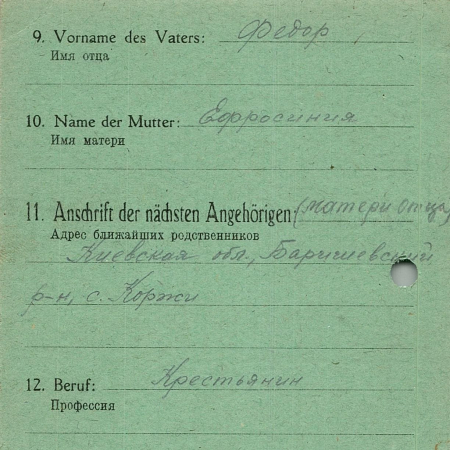 9. Vorname des Vaters: Федор
Имя отца
10. Name der Mutter: Ефросиния
Имя матери
11. Anschrift der nächsten Angehörigen: (матери отца)
Адрес ближайших родственников
Киевская обл., Баришевский
р-н, с. Коржи
12. Beruf: Крестьянин
Профессия